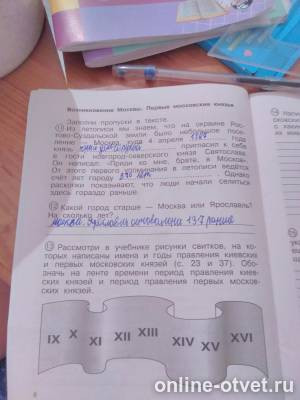 Возникновение Москвы. Первые московские князья
Заполни пропуски в тексте.
11 Из летописи мы знаем, что на окраине Рос-
тово-Суздальской земли было небольшое посе-
ление — Москва, куда 4 апреля 1147 года
князь пригласил к себе
в гости новгород-северского князя Святослава.
Он написал: «Приди ко мне, брате, в Москов».
От этого первого упоминания в летописи ведётся
счёт лет городу лет. Однако
раскопки показывают, что люди начали селиться
здесь гораздо раньше.
12 Какой город старше — Москва или Ярославль?
На сколько лет?
Ярославль основали на 137 раньше
13 Рассмотри в учебнике рисунки свитков, на ко-
торых написаны имена и годы правления киевских
и первых московских князей (с. 23 и 37). Обо-
значь на ленте времени период правления киев-
ских князей и период правления первых москов-
ских князей.
IX X XI XII XIII XIV XV XVI
8
online-otvet.ru